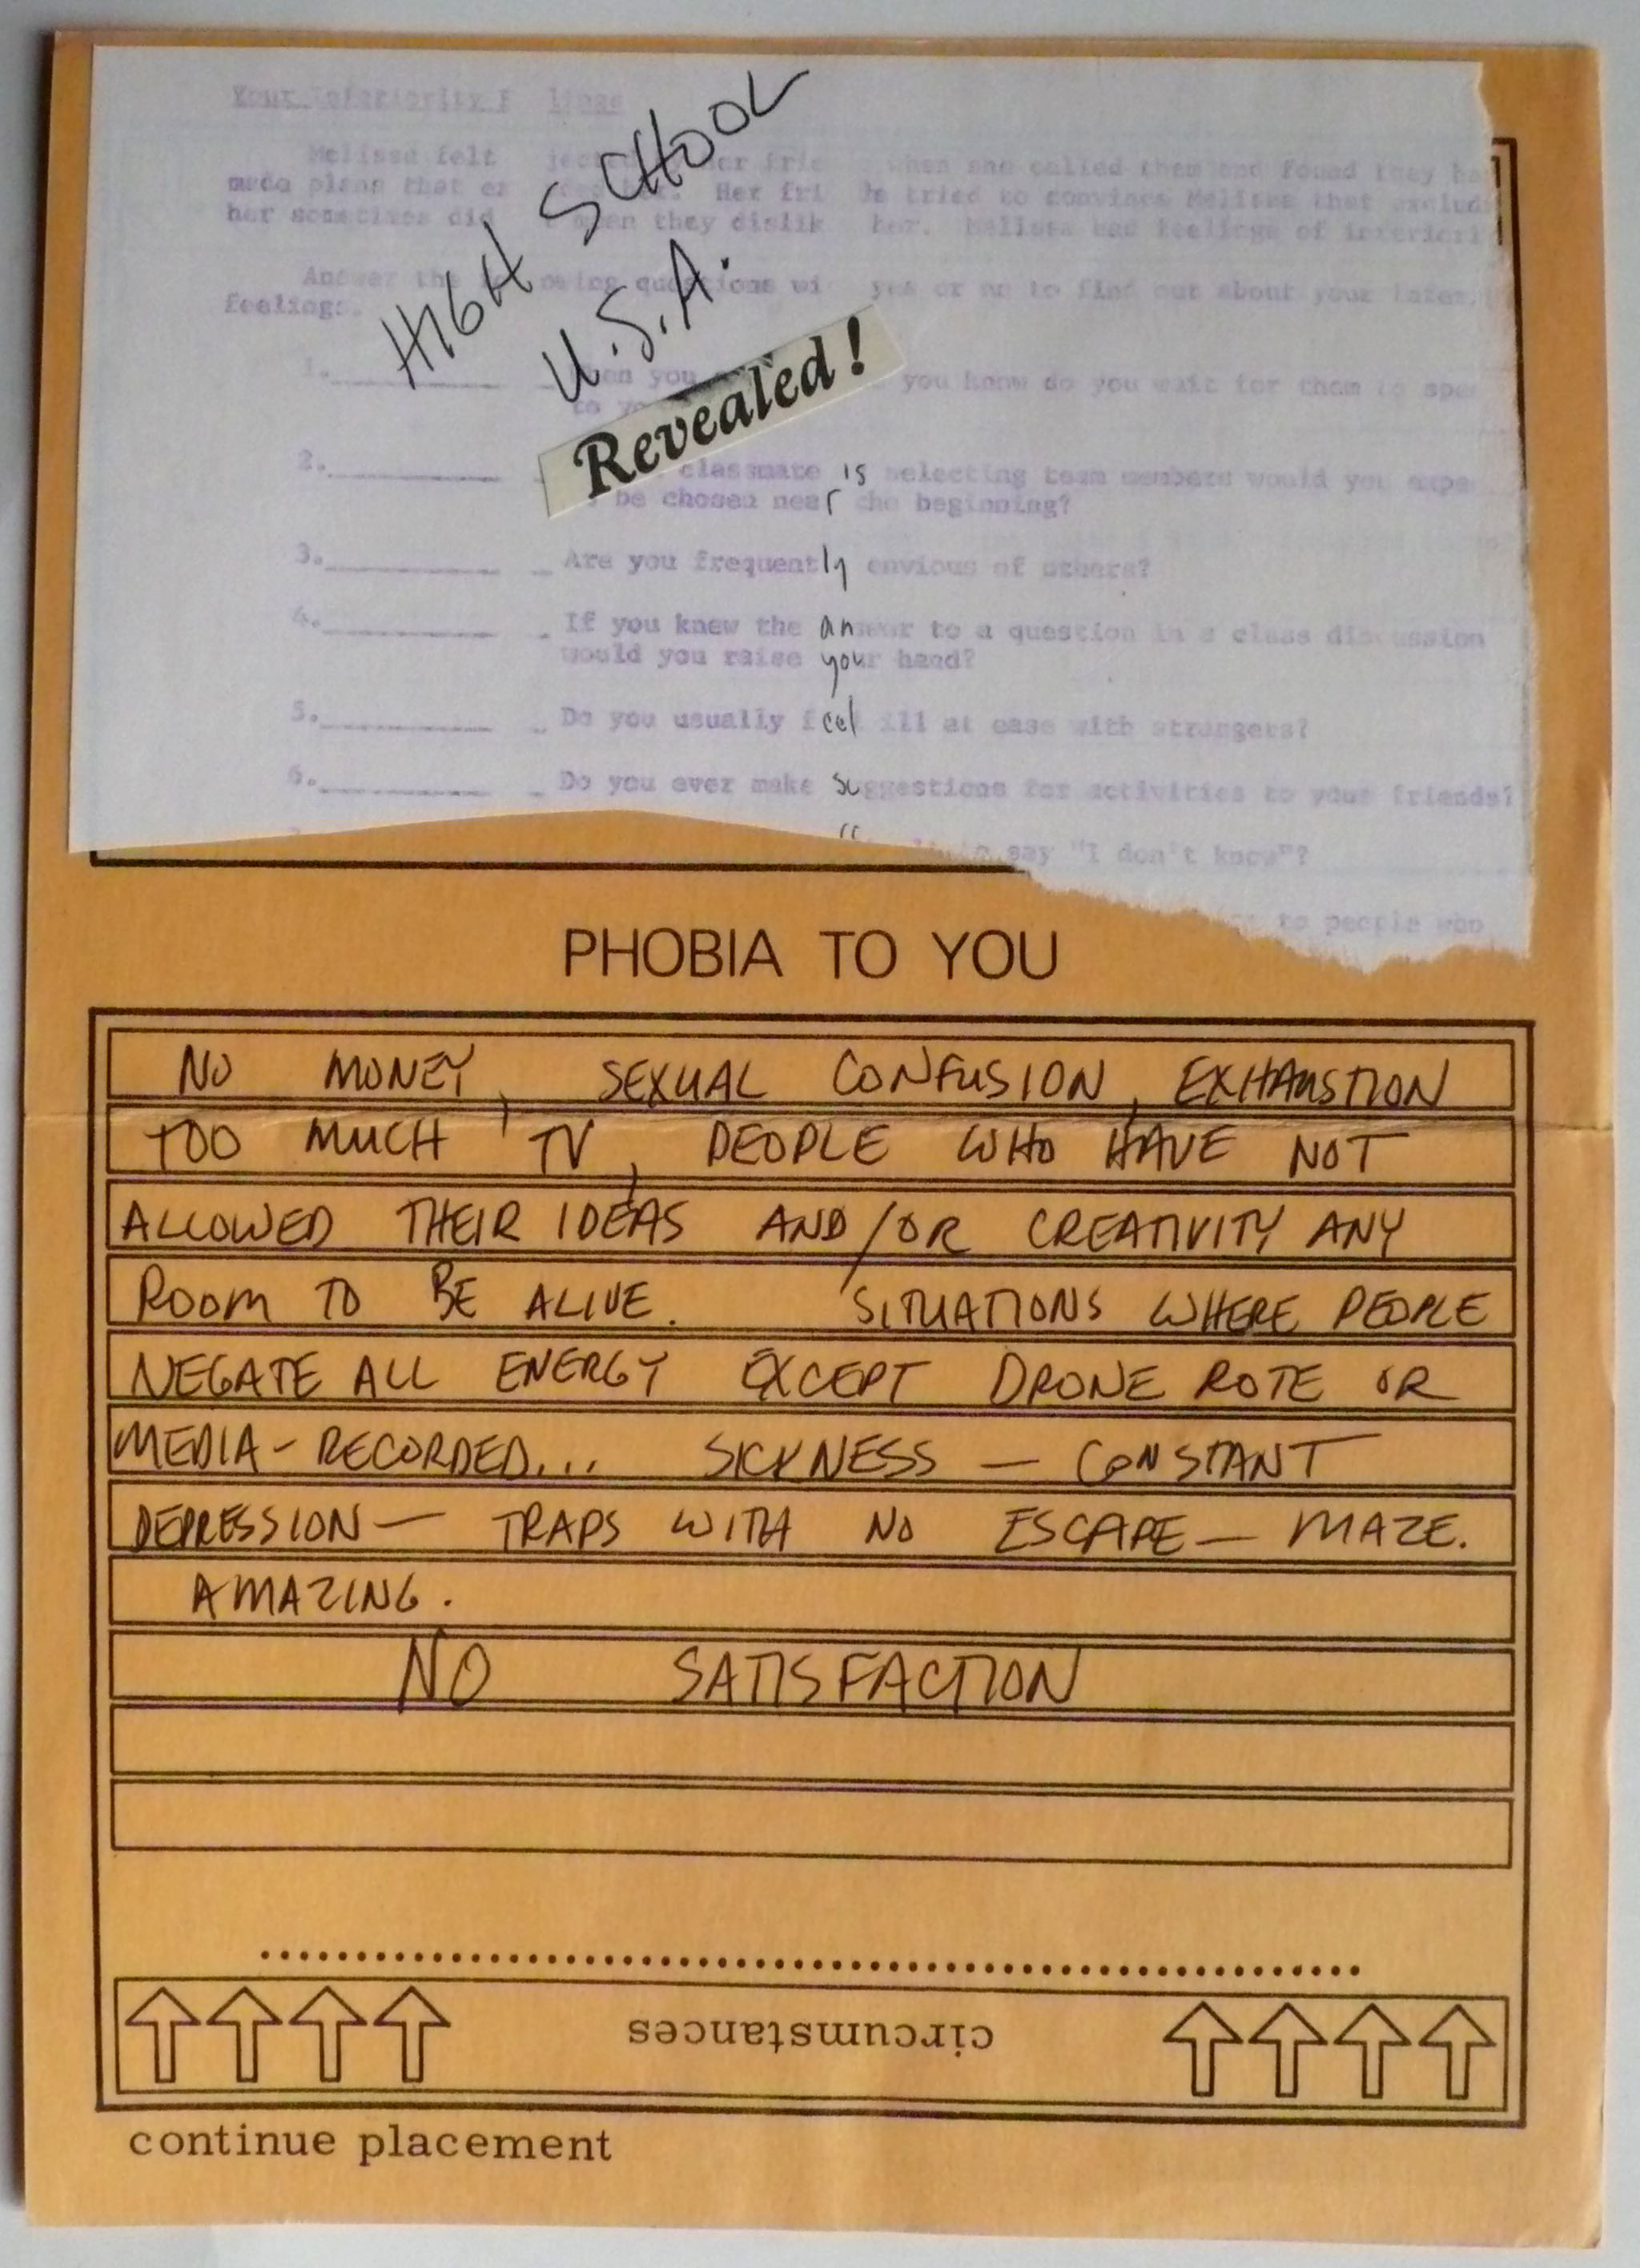 Your Inferiority F lings
Melissa felt her frie when she called them and found they ha
made plans that ex Her fri ds tried to convince Melissa that exclud
her sometimes did mean they dislik her. Melissa had feelings of inferiori
Answer the owing questions wi yes or no to find out about your infer
feelings.
HIGH SCHOOL
U.S.A.
Revealed!
1. when you you know do you wait for them to spe
to yo
2. classmate is selecting team members would you expe
be chosen near the beginning?
3. Are you frequently envious of others?
4. If you knew the answer to a question in a class discussion
would you raise your hand?
5. Do you usually feel ill at ease with strangers?
6. Do you ever make suggestions for activities to your friends?
say "I don't know"?
to people who
PHOBIA TO YOU
NO MONEY, SEXUAL CONFUSION, EXHAUSTION
TOO MUCH TV, PEOPLE WHO HAVE NOT
ALLOWED THEIR IDEAS AND/OR CREATIVITY ANY
ROOM TO BE ALIVE. SITUATIONS WHERE PEOPLE
NEGATE ALL ENERGY EXCEPT DRONE ROTE OR
MEDIA-RECORDED... SICKNESS — CONSTANT
DEPRESSION — TRAPS WITH NO ESCAPE — MAZE.
AMAZING.
NO SATISFACTION
circumstances
continue placement